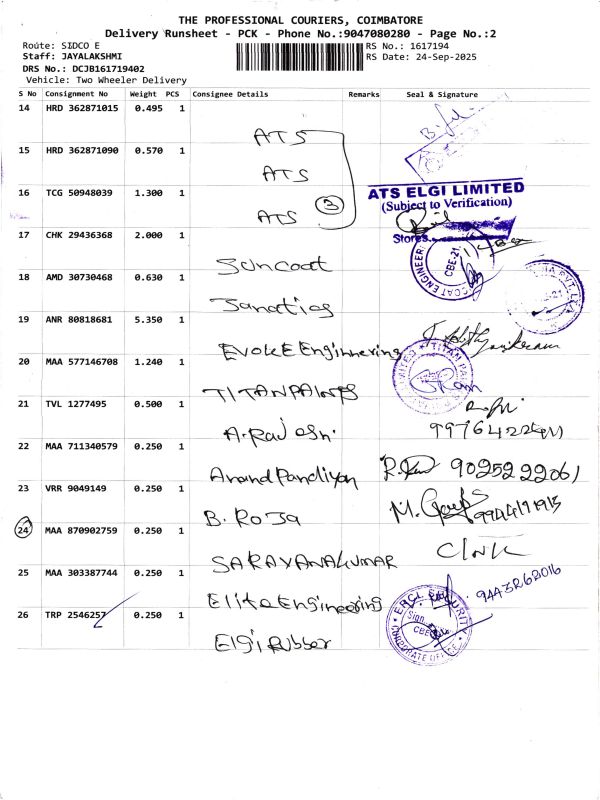 THE PROFESSIONAL COURIERS, COIMBATORE
Delivery Runsheet - PCK - Phone No.:9047080280 - Page No.:2
Route: SIDCO E
Staff: JAYALAKSHMI
DRS No.: DCJB161719402
Vehicle: Two Wheeler Delivery
RS No.: 1617194
RS Date: 24-Sep-2025
S No Consignment No Weight PCS Consignee Details Remarks Seal & Signature
14 HRD 362871015 0.495 1 ATS
15 HRD 362871090 0.570 1 ATS
16 TCG 50948039 1.300 1 ATS 3
ATS ELGI LIMITED
(Subject to Verification)
Stores
17 CHK 29436368 2.000 1 Suncoat
CBE-21
18 AMD 30730468 0.630 1
19 ANR 80818681 5.350 1 Evoke Enginnering
20 MAA 577146708 1.240 1 TITANPAINTS
21 TVL 1277495 0.500 1 A.Rajesh.
22 MAA 711340579 0.250 1 Anand Pandiyan 9025222061
23 VRR 9049149 0.250 1 B. ROJA
24 MAA 870902759 0.250 1 SARAVANAKUMAR
25 MAA 303387744 0.250 1 Elite Engineering
26 TRP 2546257 0.250 1 Elgi Rubber
CORPORATE OFFICE